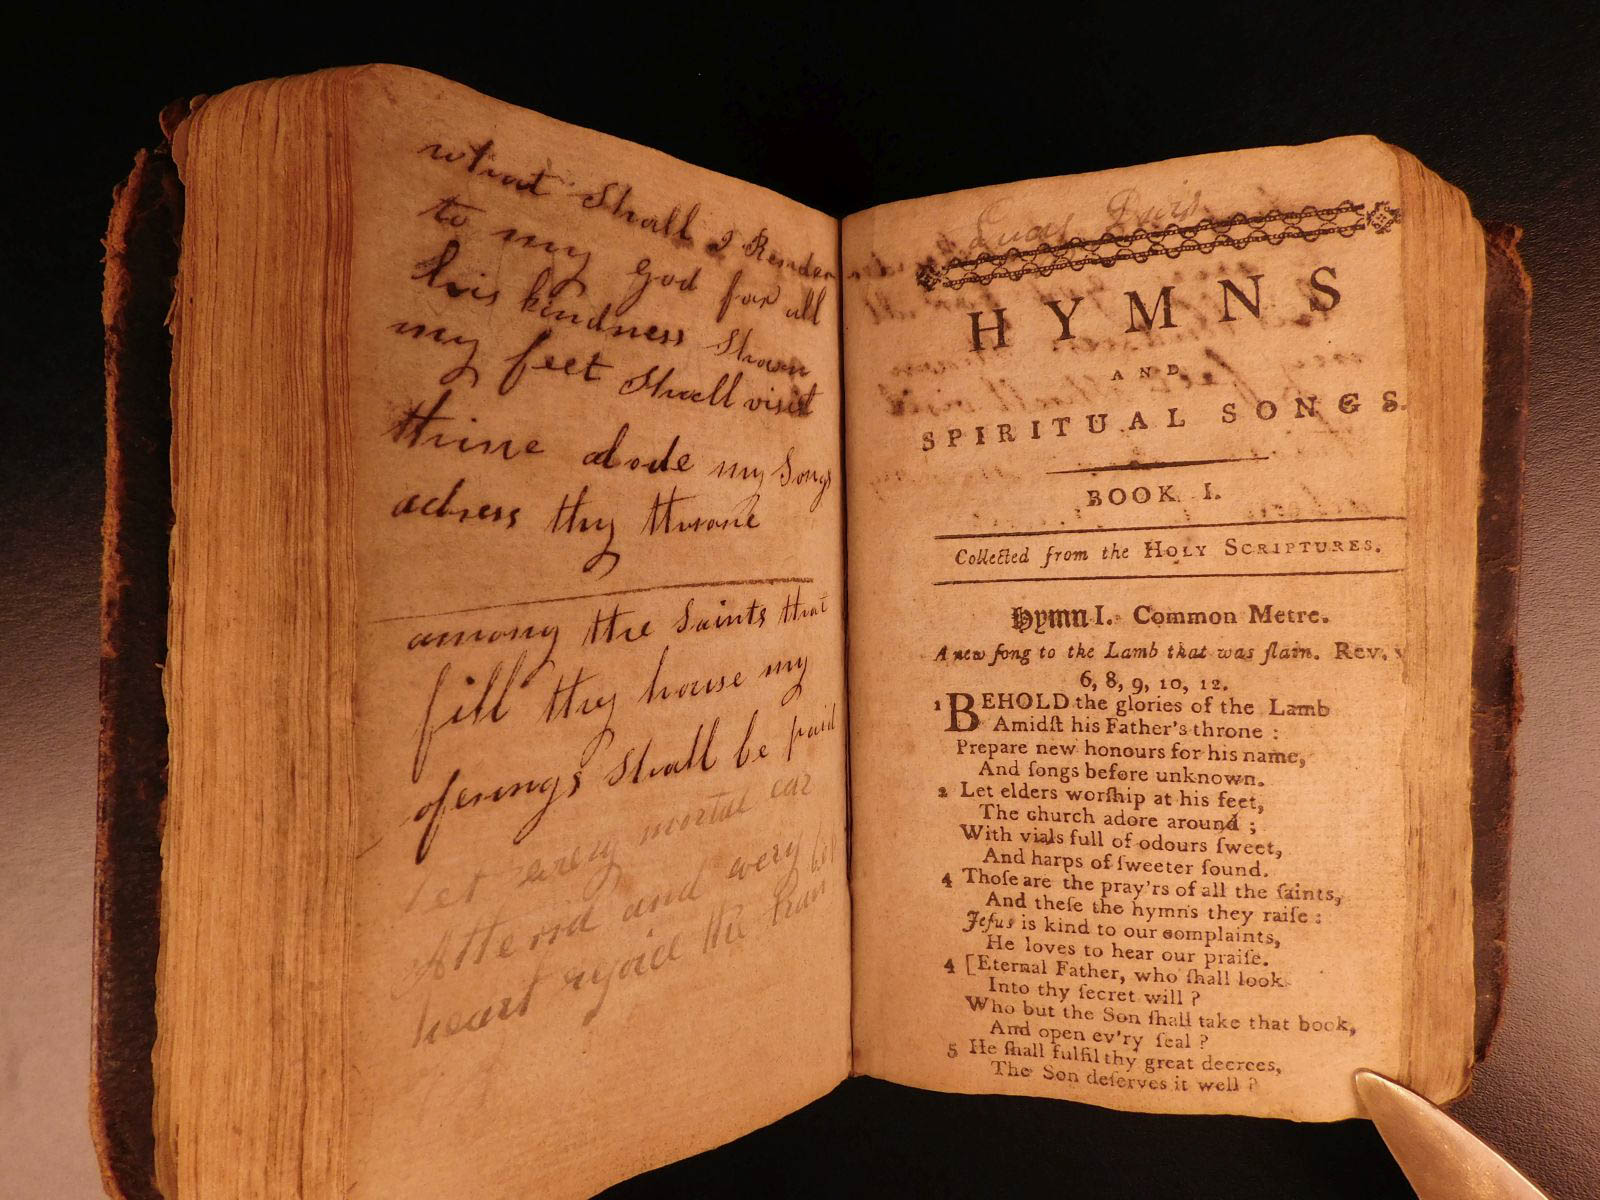 what Shall I Render
to my god for all
his kindness Shown
my feet Shall visit
thine abode my Songs
adress thy throne
among the Saints that
fill thy house my
oferings Shall be paid
Let every mortal ear
Attend and every
heart rejoice the
Davis
HYMNS
AND
SPIRITUAL SONGS.
BOOK I.
Collected from the HOLY SCRIPTURES.
Hymn I. Common Metre.
A new ſong to the Lamb that was ſlain. Rev. v
6, 8, 9, 10, 12.
1 BEHOLD the glories of the Lamb
Amidſt his Father's throne :
Prepare new honours for his name,
And ſongs before unknown.
2 Let elders worſhip at his feet,
The church adore around ;
With vials full of odours ſweet,
And harps of ſweeter ſound.
4 Thoſe are the pray'rs of all the ſaints,
And theſe the hymns they raiſe :
Jeſus is kind to our complaints,
He loves to hear our praiſe.
4 [Eternal Father, who ſhall look
Into thy ſecret will ?
Who but the Son ſhall take that book,
And open ev'ry ſeal ?
5 He ſhall fulfil thy great decrees,
The Son deſerves it well ?